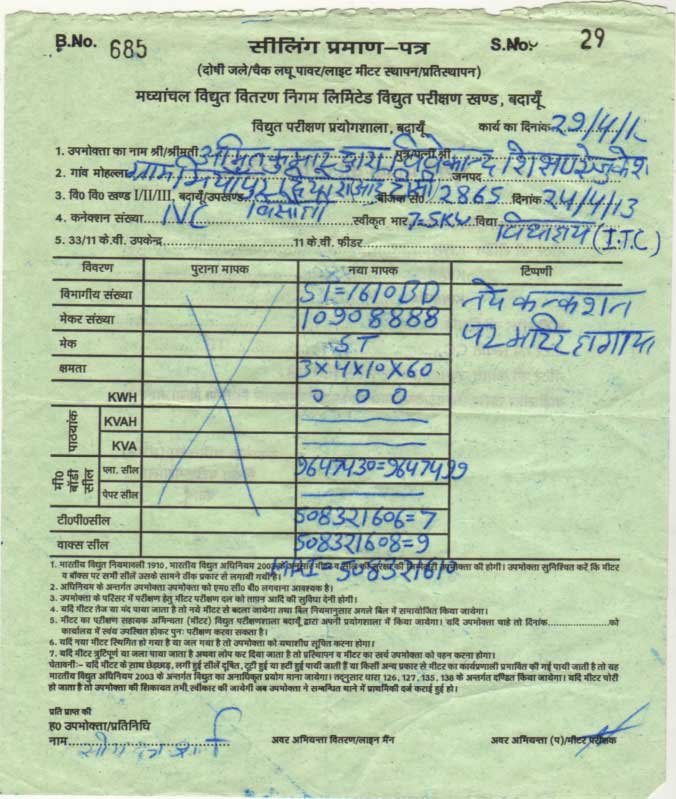 B.No. 685 सीलिंग प्रमाण-पत्र S.No. 29
(दोषी जले/चैक लघु पावर/लाइट मीटर स्थापन/प्रतिस्थापन)
मध्यांचल विद्युत वितरण निगम लिमिटेड विद्युत परीक्षण खण्ड, बदायूँ
विद्युत परीक्षण प्रयोगशाला, बदायूँ कार्य का दिनांक 29/4/1
1. उपभोक्ता का नाम श्री/श्रीमती अमित कुमार द्वारा पुत्र/पत्नी श्री
2. गांव मोहल्ला ग्राम जनपद
3. वि0 वि0 खण्ड I/II/III, बदायूँ/उपखण्ड बीजक सं0 2865 दिनांक 24/4/13
4. कनेक्शन संख्या NC स्वीकृत भार 7.5KW विद्या
(I.T.C)
5. 33/11 के.वी. उपकेन्द्र 11 के.वी. फीडर
विवरण पुराना मापक नया मापक टिप्पणी
विभागीय संख्या ST=1610BD नये
मेकर संख्या 10908888 पर
मेक ST
क्षमता 3×4×10×60
पाठ्यांक
KWH 0 0 0
KVAH
KVA
मी0 बॉडी सील
प्ला. सील 9647430=9647499
पेपर सील
टी0पी0सील 508321606=7
वाक्स सील 508321608=9
508321610
1. भारतीय विद्युत नियमावली 1910, भारतीय विद्युत अधिनियम 2003 के अनुसार मीटर व सील की सुरक्षा की जिम्मेदारी उपभोक्ता की होगी। उपभोक्ता सुनिश्चित करें कि मीटर
व बॉक्स पर सभी सीलें उसके सामने ठीक प्रकार से लगायी गयी है।
2. अधिनियम के अन्तर्गत उपभोक्ता उपभोक्ता को एम0 सी0 बी0 लगवाना आवश्यक है।
3. उपभोक्ता के परिसर में परीक्षण हेतु मीटर परीक्षण दल को तापन आदि की सुविधा देनी होगी।
4. यदि मीटर तेज या मंद पाया जाता है तो नये मीटर से बदला जायेगा तथा बिल नियमानुसार अगले बिल में समायोजित किया जायेगा।
5. मीटर का परीक्षण सहायक अभियन्ता (मीटर) विद्युत परीक्षणशाला बदायूँ द्वारा अपनी प्रयोगशाला में किया जायेगा। यदि उपभोक्ता चाहे तो दिनांक को
कार्यालय में स्वंय उपस्थित होकर पुनः परीक्षण करवा सकता है।
6. यदि नया मीटर स्थिगित हो गया है या जल गया है तो उपभोक्ता को यथाशीघ्र सूचित करना होगा।
7. यदि मीटर त्रुटिपूर्ण या जला पाया जाता है अथवा लोप कर दिया जाता है तो प्रस्थिापन व मीटर का खर्च उपभोक्ता को वहन करना होगा।
चेतावनी:- यदि मीटर के साथ छेड़छाड़, लगी हुई सीलें दूषित, टूटी हुई या हटी हुई पायी जाती हैं या किसी अन्य प्रकार से मीटर का कार्यप्रणाली प्रभावित की गई पायी जाती है तो यह
भारतीय विद्युत अधिनियम 2003 के अन्तर्गत विद्युत का अनाधिकृत प्रयोग माना जायेगा। तद्नुसार धारा 126, 127, 135, 138 के अन्तर्गत दण्डित किया जायेगा। यदि मीटर चोरी
हो जाता है तो उपभोक्ता की शिकायत तभी स्वीकार की जायेगी जब उपभोक्ता ने सम्बन्धित थाने में प्राथमिकी दर्ज कराई हुई हो।
प्रति प्राप्त की
ह0 उपभोक्ता/प्रतिनिधि
नाम अवर अभियन्ता वितरण/लाइन मैंन अवर अभियन्ता (प)/मीटर परीक्षक